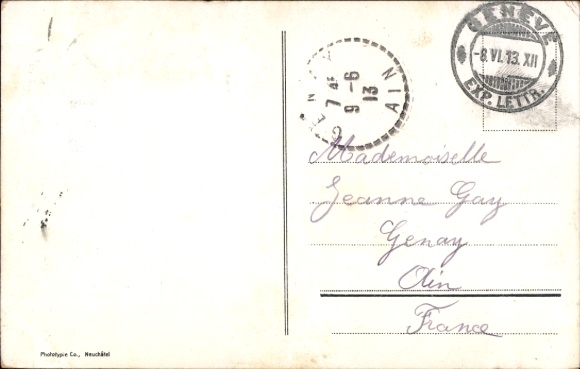 GENÈVE
-8.VI.13.XII
EXP. LETTR.
GENAY
7 45
9 -6
13
AIN
Mademoiselle
Jeanne Gay
Genay
Ain
France
Phototypie Co., Neuchâtel